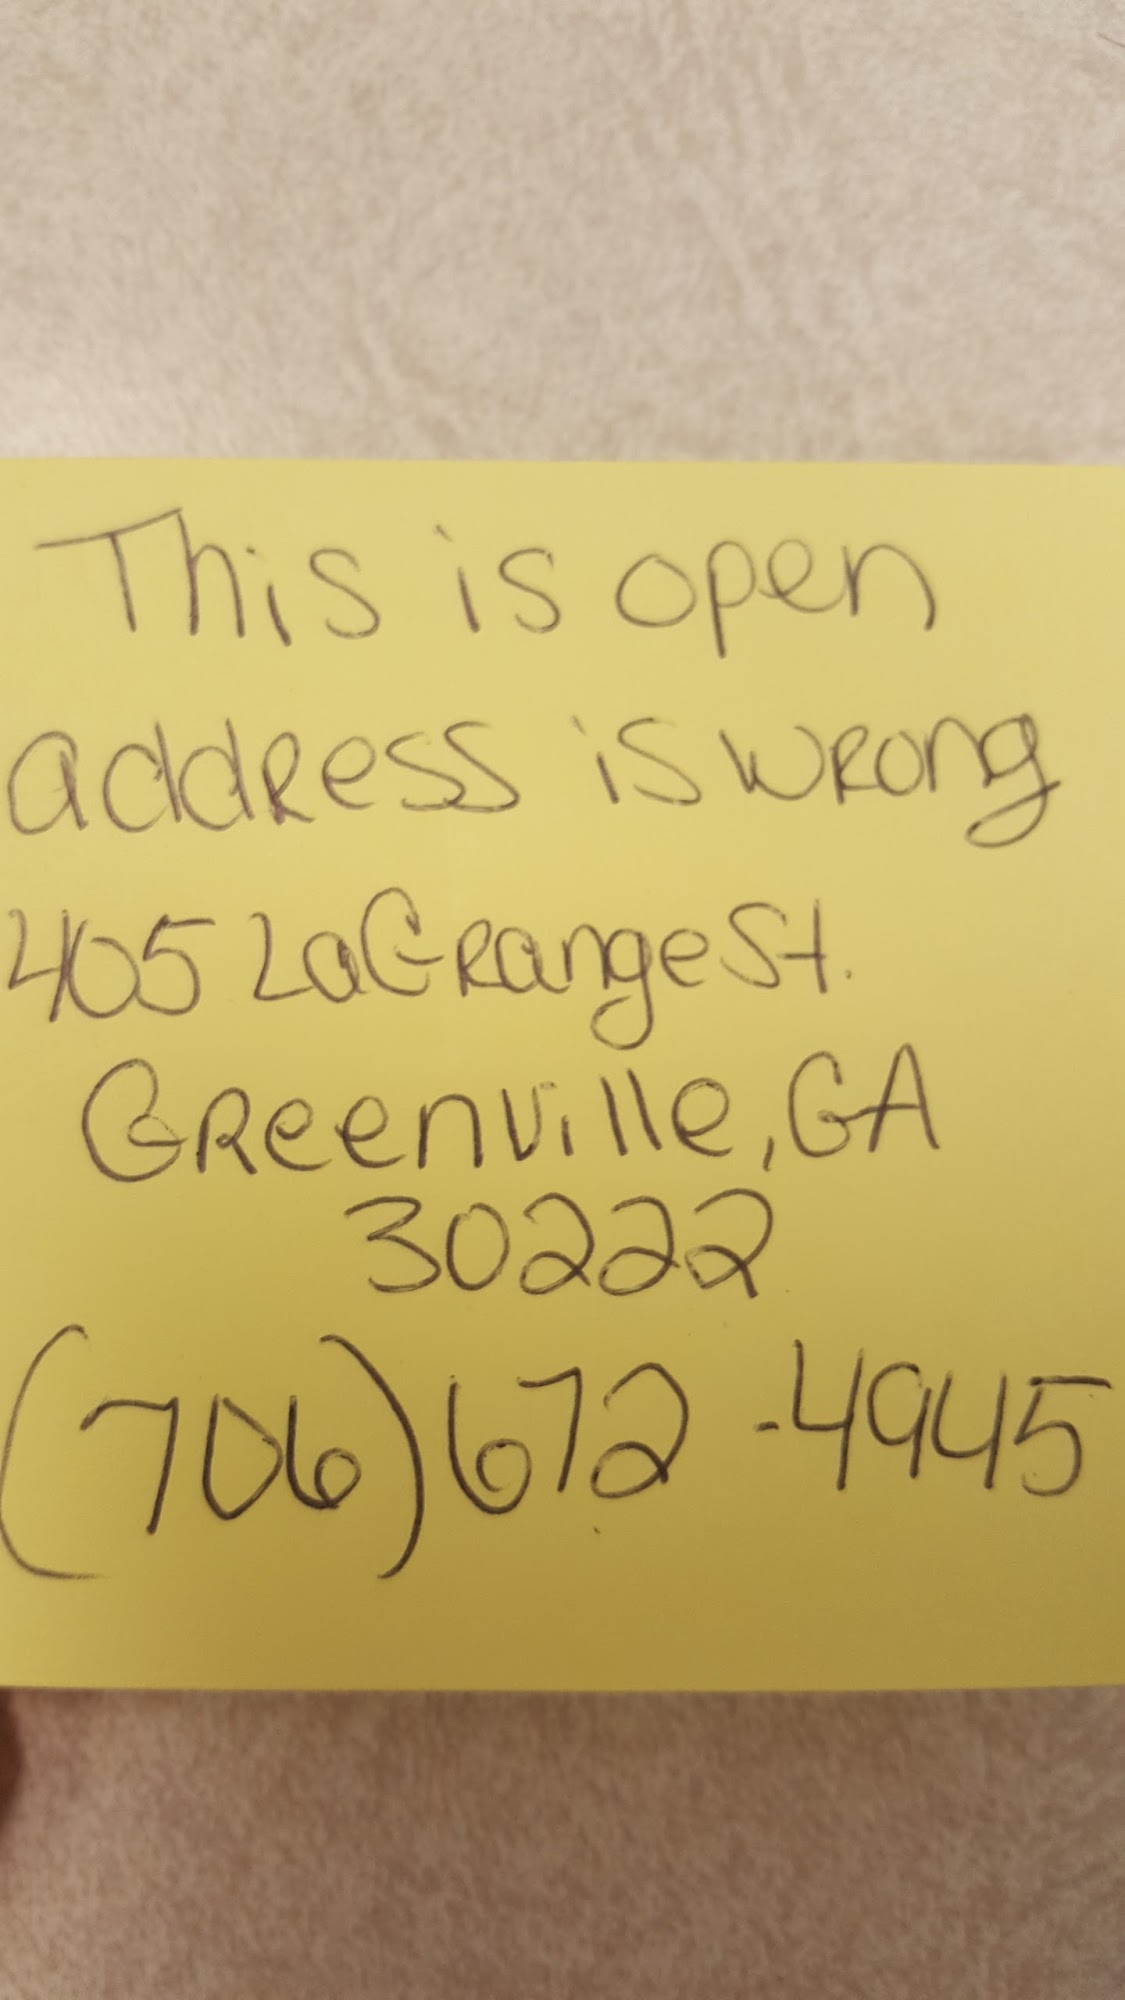 This is open
address is wrong
405 LaGrange St.
Greenville, GA
30222
(706) 672-4945